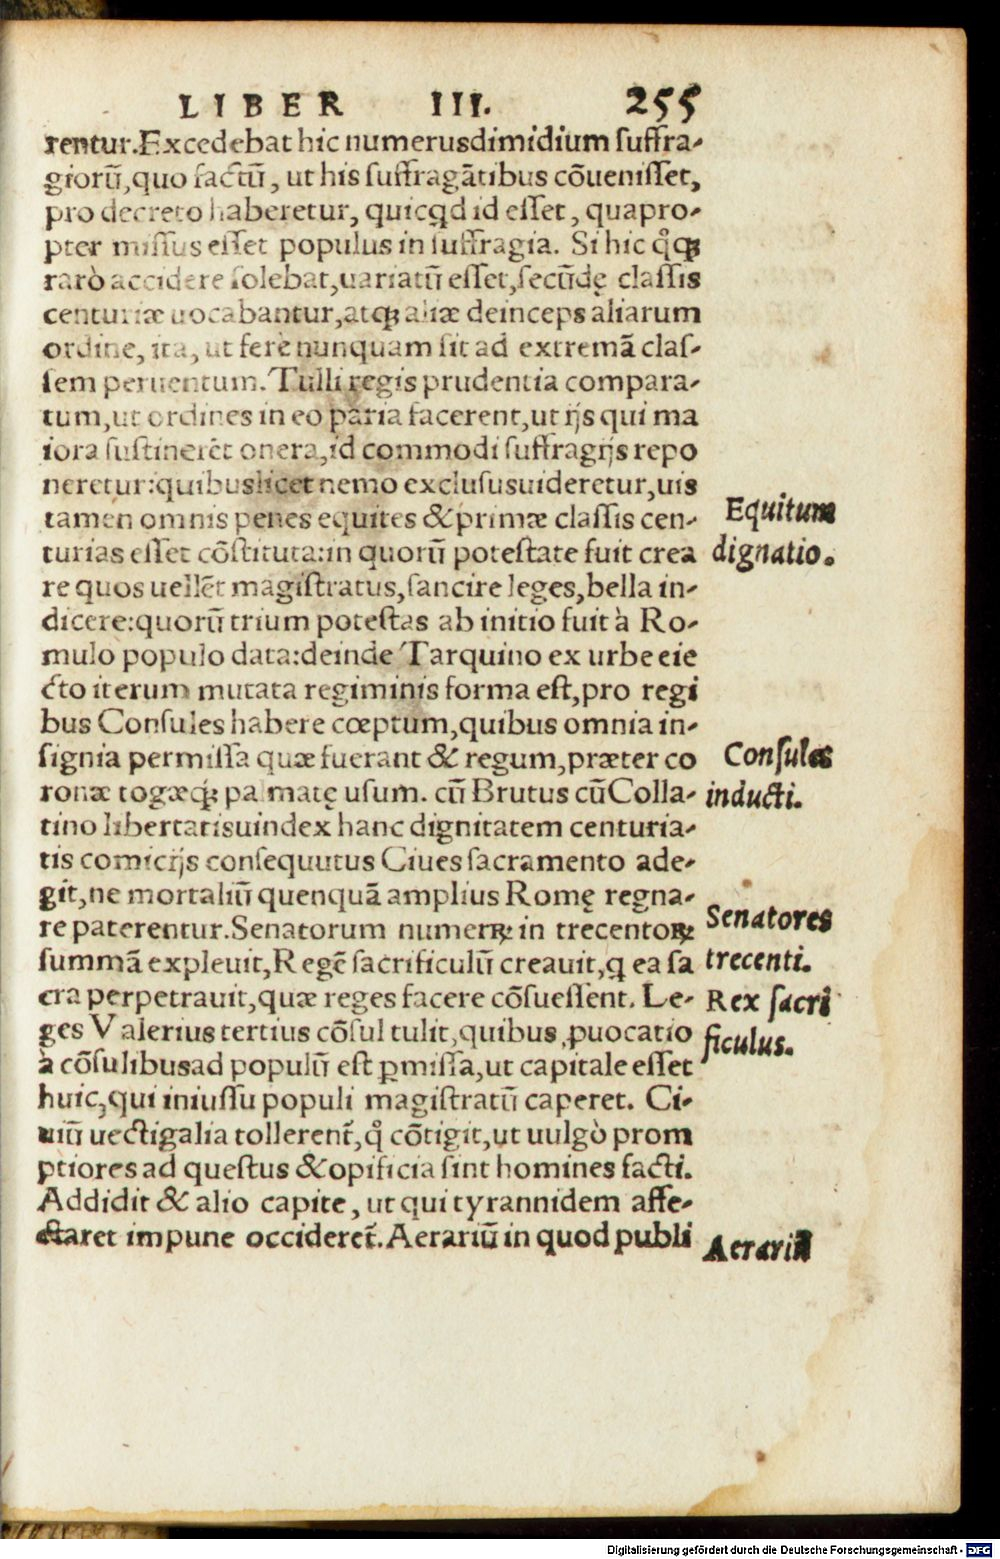 LIBER III. 255
rentur. Excedebat hic numerus dimidium suffra-
giorũ, quo factũ, ut his suffragãtibus cõuenisset,
pro decreto haberetur, quicꝗd id esset, quapro-
pter missus esset populus in suffragia. Si hic qͥꝗ
rarò accidere solebat, uariatũ esset, secũdę classis
centuriæ uocabantur, atqꝫ aliæ deinceps aliarum
ordine, ita, ut ferè nunquam sit ad extremã clas-
sem peruentum. Tulli regis prudentia compara-
tum, ut ordines in eo paria facerent, ut ijs qui ma
iora sustinerẽt onera, id commodi suffragijs repo
neretur: quibus licet nemo exclusus uideretur, uis
tamen omnis penes equites & primæ classis cen-
turias esset cõstituta: in quorũ potestate fuit crea
re quos uellẽt magistratus, sancire leges, bella in-
dicere: quorũ trium potestas ab initio fuit à Ro-
mulo populo data: deinde Tarquino ex urbe eie
cto iterum mutata regiminis forma est, pro regi
bus Consules habere cœptum, quibus omnia in-
signia permissa quæ fuerant & regum, præter co
ronæ togæqꝫ palmatę usum. cũ Brutus cũ Colla-
tino libertatis uindex hanc dignitatem centuria-
tis comicijs consequutus Ciues sacramento ade-
git, ne mortaliũ quenquã amplius Romę regna-
re paterentur. Senatorum numerꝝ in trecentoꝝ
summã expleuit, Regẽ sacrificulũ creauit, ꝗ ea sa
cra perpetrauit, quæ reges facere cõsuessent. Le-
ges Valerius tertius cõsul tulit, quibus ꝓuocatio
à cõsulibus ad populũ est ꝑmissa, ut capitale esset
huic, qui iniussu populi magistratũ caperet. Ci-
uiũ uectigalia tollerent̃, qͥ cõtigit, ut uulgò prom
ptiores ad questus & opificia sint homines facti.
Addidit & alio capite, ut qui tyrannidem affe-
ctaret impune occideret̃. Aerariũ in quod publi
Equitum
dignatio.
Consules
inducti.
Senatores
trecenti.
Rex sacri
ficulus.
Aerariũ
Digitalisierung gefördert durch die Deutsche Forschungsgemeinschaft - DFG